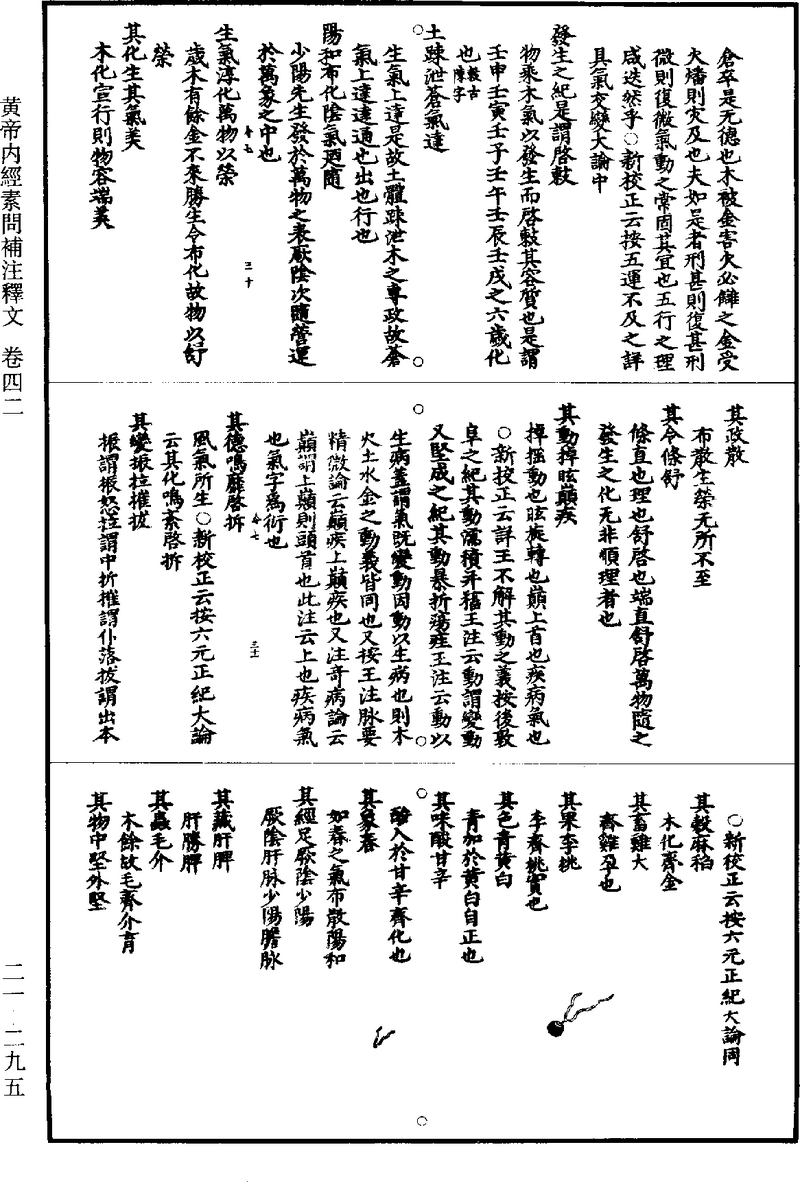 倉卒是无德也木被金害火必讎之金受
火燔則灾及也夫如是者刑甚則復甚刑
微則復微氣動之常固其宜也五行之理
咸迭然乎○新校正云按五運不及之詳
具氣交變大論中
發生之紀是謂啓敕
物乘木氣以發生而啓敕其容質也是謂
壬申壬寅壬子壬午壬辰壬戌之六歲化
也敕古陳字
土踈泄蒼氣達
生氣上達是故土體踈泄木之專政故蒼
氣上達達通也出也行也
陽和布化陰氣廼隨
少陽先生發於萬物之表厥陰次隨營運
於萬象之中也
生氣淳化萬物以榮
歲木有餘金不來勝生令布化故物以舒
榮
其化生其氣美
木化宣行則物容端美
其政散
布散生榮无所不至
其令條舒
條直也理也舒啓也端直舒啓萬物隨之
發生之化无非順理者也
其動掉眩巔疾
掉揺動也眩旋轉也巔上首也疾病氣也
○新校正云詳王不解其動之義按後敦
阜之紀其動濡積并稸王注云動謂變動
又堅成之紀其動暴折瘍疰王注云動以
生病蓋謂氣既變動因動以生病也則木
火土水金之動義皆同也又按王注脉要
精微論云巔疾上巔疾也又注奇病論云
巔謂上巔則頭首也此注云上也疾病氣
也氣字爲衍也
其德鳴靡啓拆
風氣所生○新校正云按六元正紀大論
云其化鳴紊啓拆
其變振拉摧拔
振謂振怒拉謂中折摧謂仆落拔謂出本
○新校正云按六元正紀大論同
其穀麻稻
木化齊金
其畜雞犬
齊雞孕也
其果李桃
李齊桃實也
其色青黄白
青加於黄白自正也
其味酸甘辛
酸入於甘辛齊化也
其象春
如春之氣布散陽和
其經足厥陰少陽
厥陰肝脉少陽膽脉
其藏肝脾
肝勝脾
其蟲毛介
木餘故毛齊介育
其物中堅外堅
黄帝内經素問補注釋文　卷四二
二一·二九五